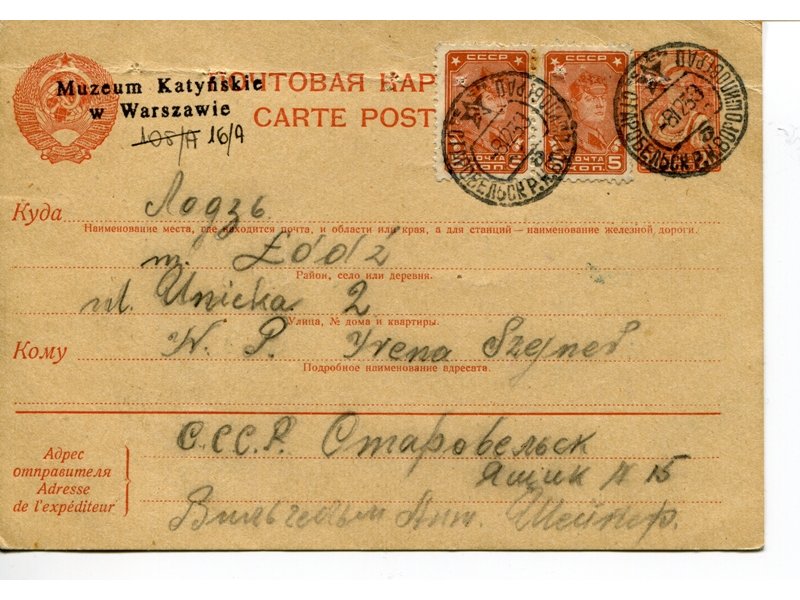 Muzeum Katyńskie
w Warszawie
108/A 16/9
ПОЧТОВАЯ КАР
CARTE POST
СССР
ПОЧТА
5 КОП.
СССР
ПОЧТА
КОП. 5
Куда Лодзь
Наименование места, где находится почта, и области или края, а для станций — наименование железной дороги.
m. Łódź
Район, село или деревня.
ul. Unicka 2
Улица, № дома и квартиры.
Кому W. P. Irena Szejner
Подробное наименование адресата.
Адрес отправителя
Adresse de l'expéditeur
С.С.С.Р. Старобельск
Ящик N 15
Шейнер.